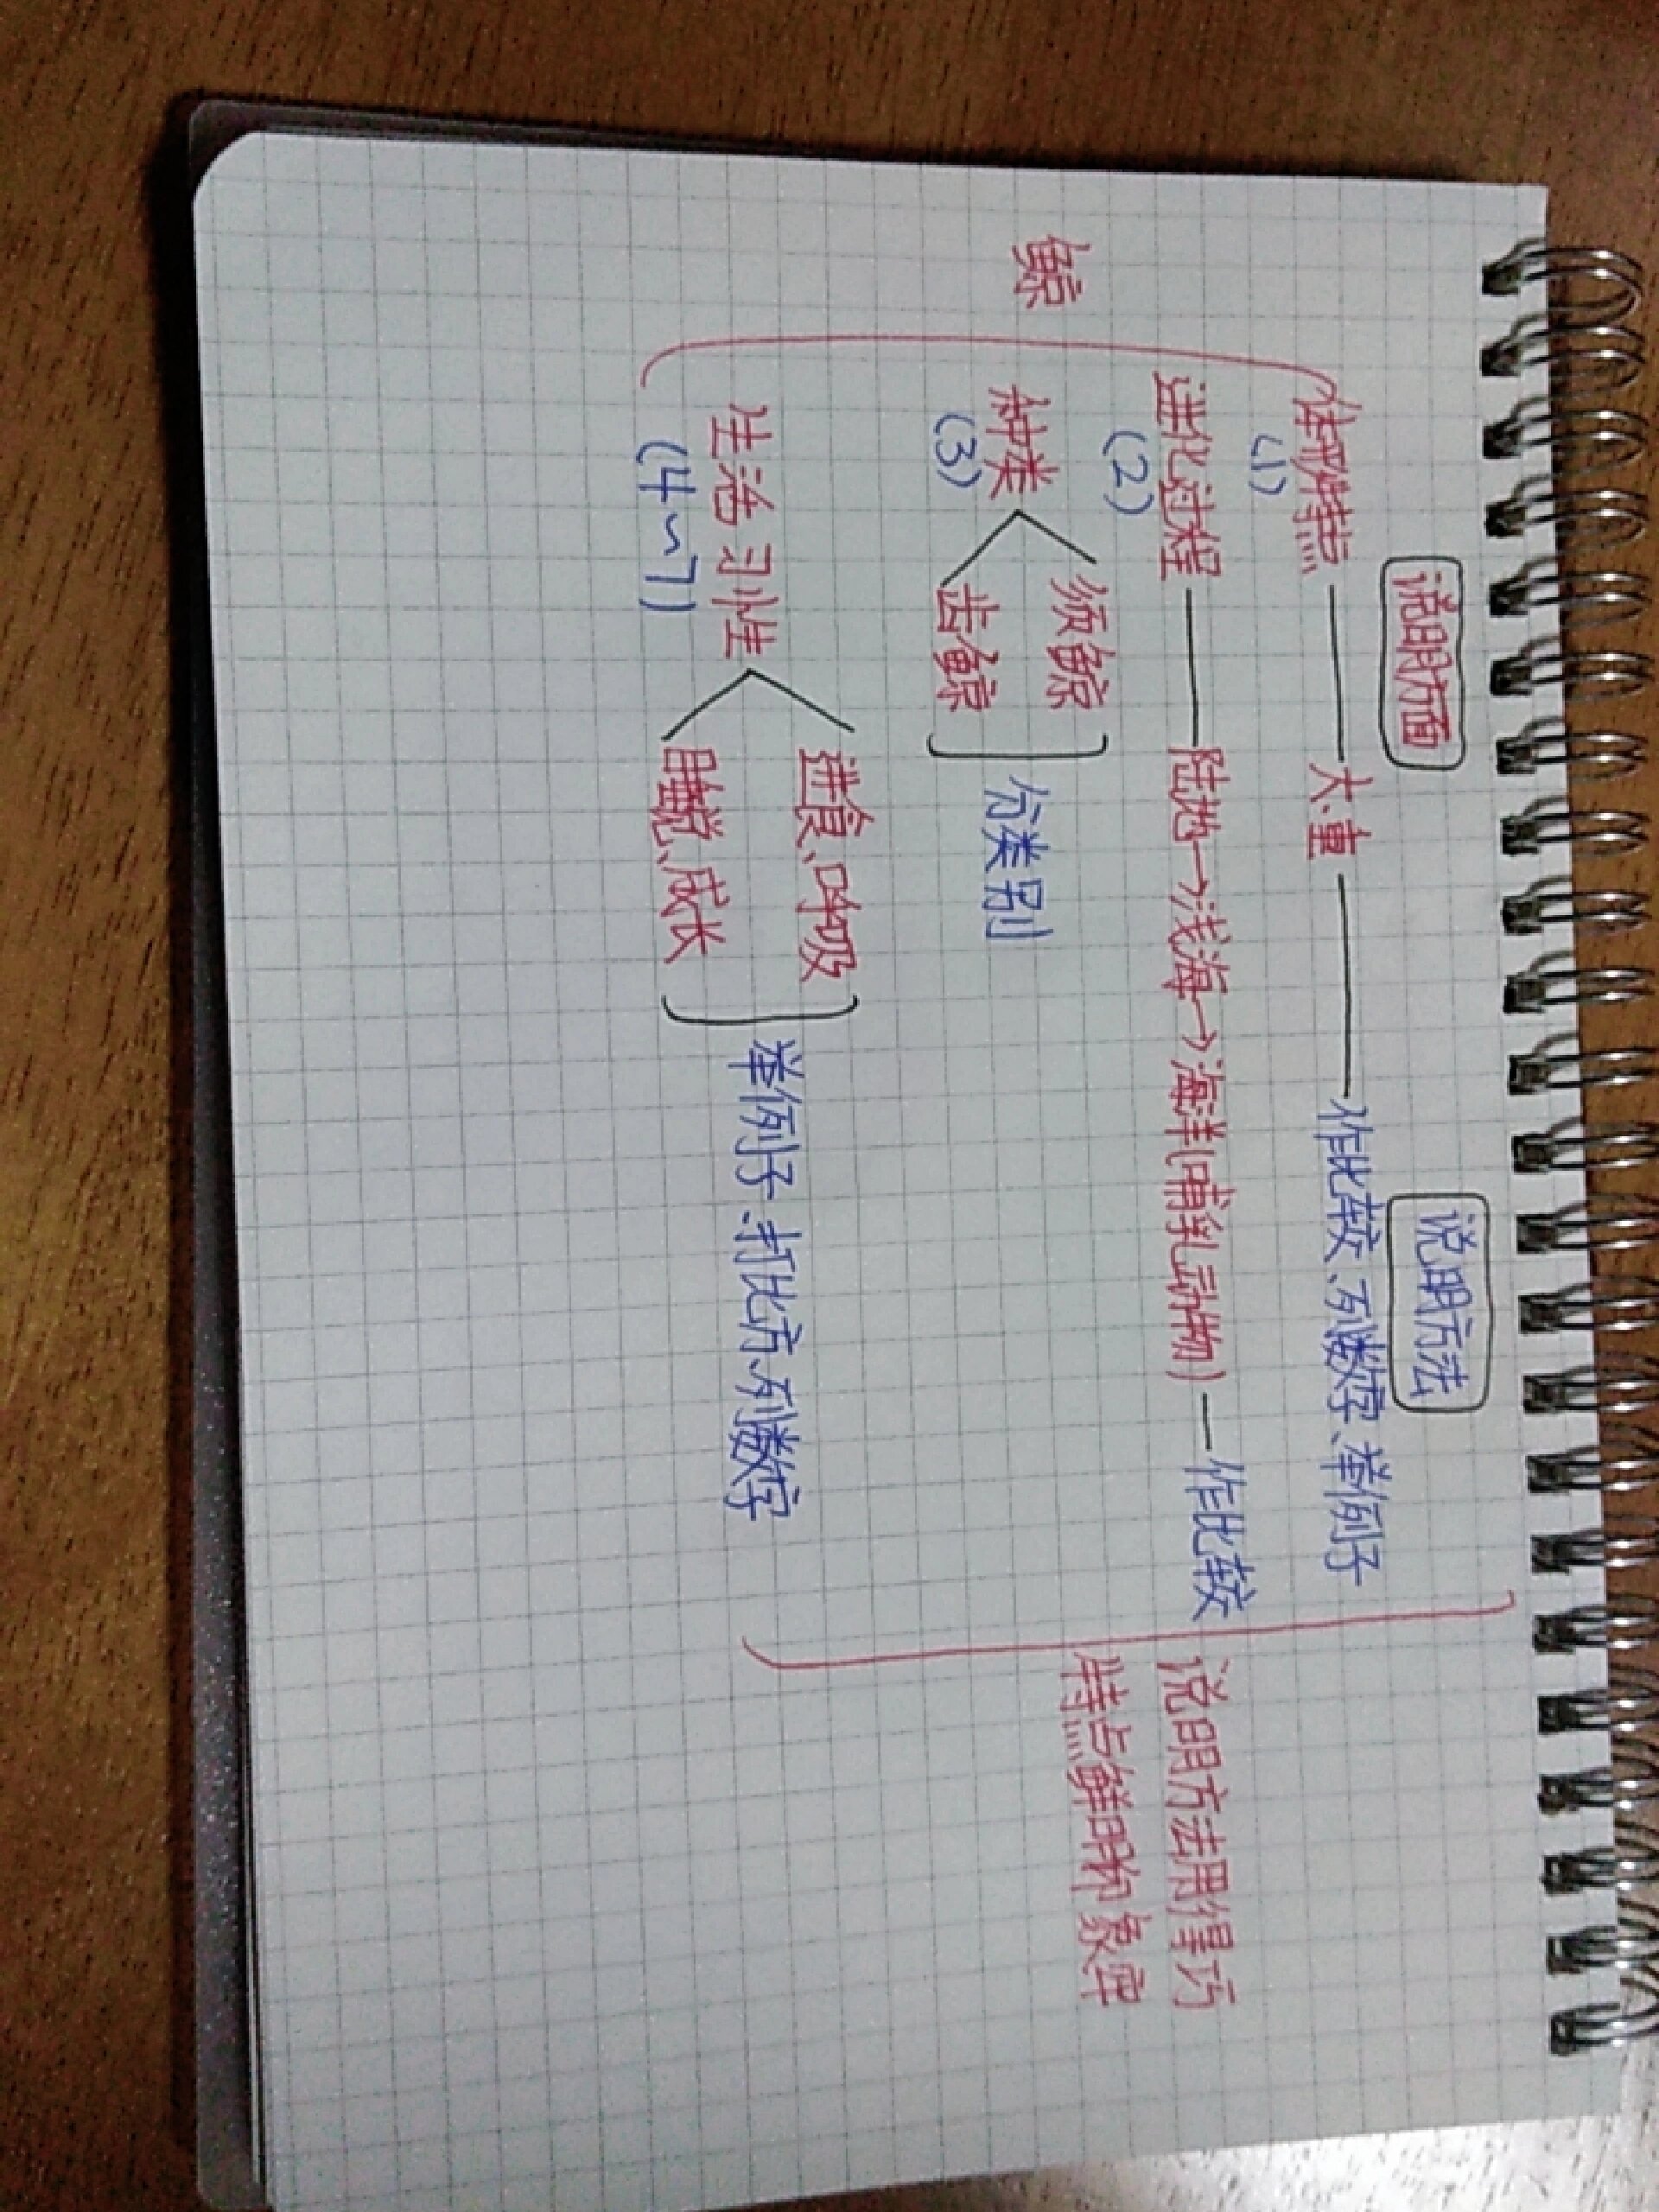 说明方面 说明方法
鲸
体形特点 —— 大、重 —— 作比较、列数字、举例子
(1)
进化过程 —— 陆地→浅海→海洋(哺乳动物) — 作比较
(2)
须鲸
种类 分类别
(3)
齿鲸
进食、呼吸
生活习性 举例子、打比方、列数字
(4~7)
睡觉、成长
说明方法用得巧
特点鲜明印象牢